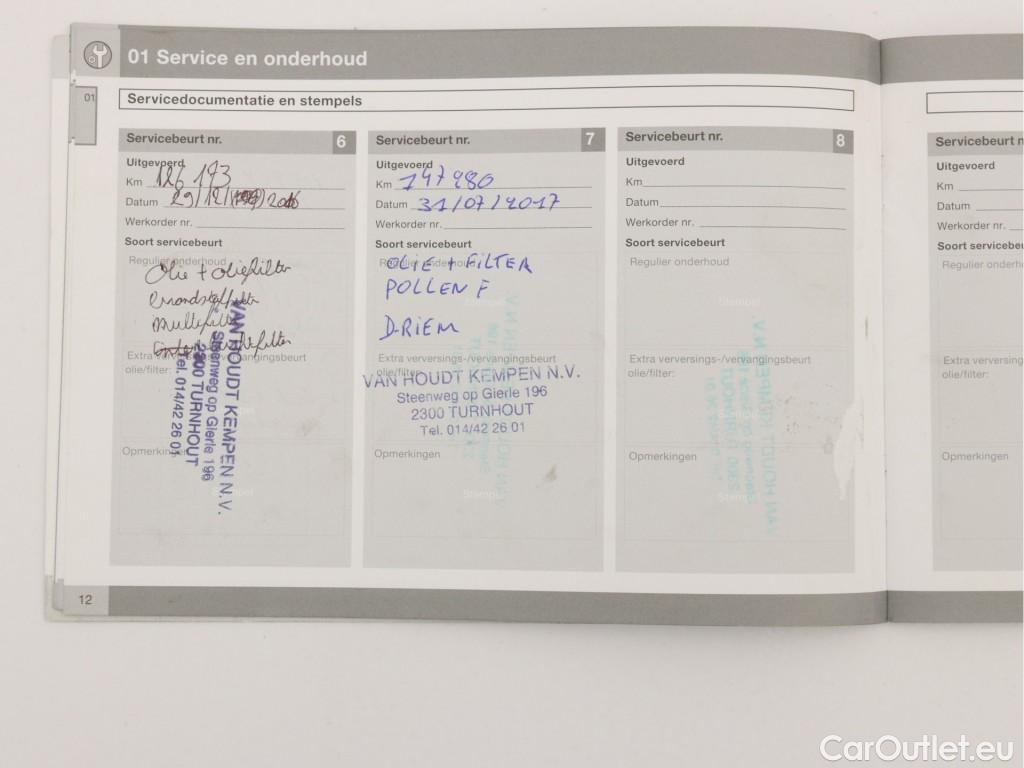 01 Service en onderhoud
01
Servicedocumentatie en stempels
Servicebeurt nr. 6
Uitgevoerd
Km 126 173
Datum 29/12/ 2016
Werkorder nr.
Soort servicebeurt
Regulier onderhoud
Olie + oliefilter
Extra verversings-/vervangingsbeurt
olie/filter:
VAN HOUDT KEMPEN N.V.
Steenweg op Gierle 196
2300 TURNHOUT
Tel. 014/42 26 01
Opmerkingen
Stempel
Servicebeurt nr. 7
Uitgevoerd
Km 147 980
Datum 31/07/2017
Werkorder nr.
Soort servicebeurt
Regulier onderhoud
OLIE + FILTER
POLLEN F
D-RIEM
Extra verversings-/vervangingsbeurt
olie/filter:
VAN HOUDT KEMPEN N.V.
Steenweg op Gierle 196
2300 TURNHOUT
Tel. 014/42 26 01
Opmerkingen
Stempel
Servicebeurt nr. 8
Uitgevoerd
Km
Datum
Werkorder nr.
Soort servicebeurt
Regulier onderhoud
Stempel
Extra verversings-/vervangingsbeurt
olie/filter:
Opmerkingen
Stempel
Servicebeurt n
Uitgevoerd
Km
Datum
Werkorder nr.
Soort servicebeu
Regulier onderho
Extra verversings
olie/filter:
Opmerkingen
12
CarOutlet.eu